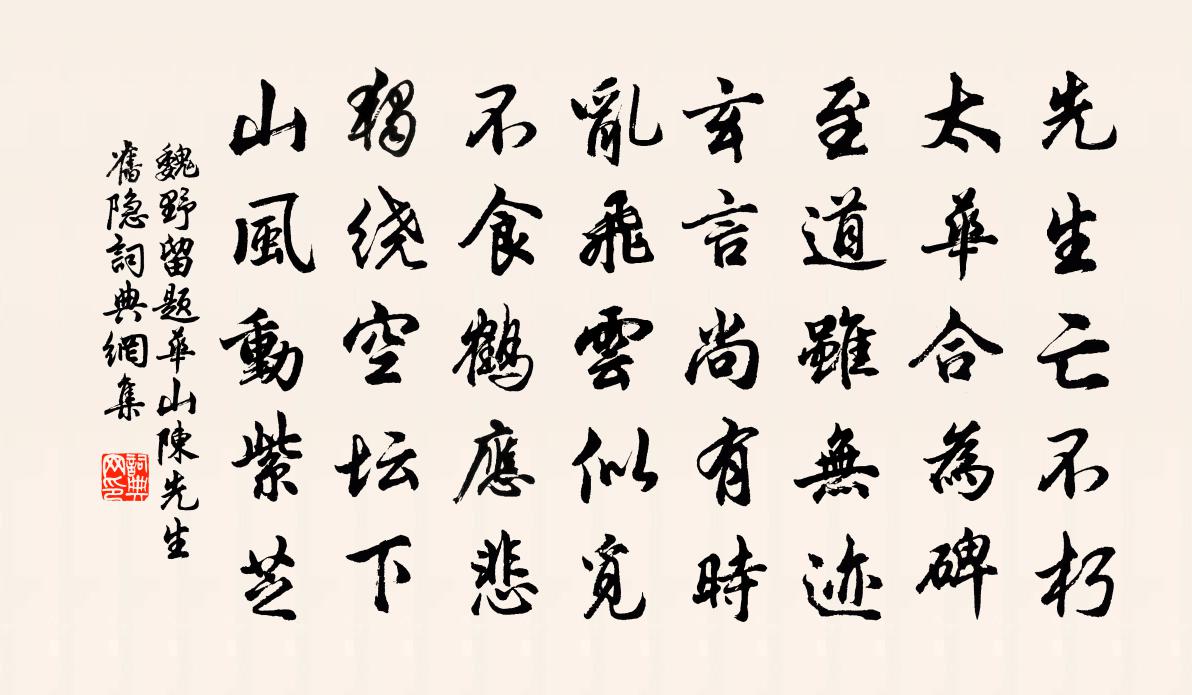 先生亡不朽
太華合為碑
至道雖無迹
玄言尚有時
亂飛雲似覓
不食鶴應悲
獨绕空坛下
山風動紫芝
魏野留题華山陳先生
舊隐詞典網集
詞典
网印